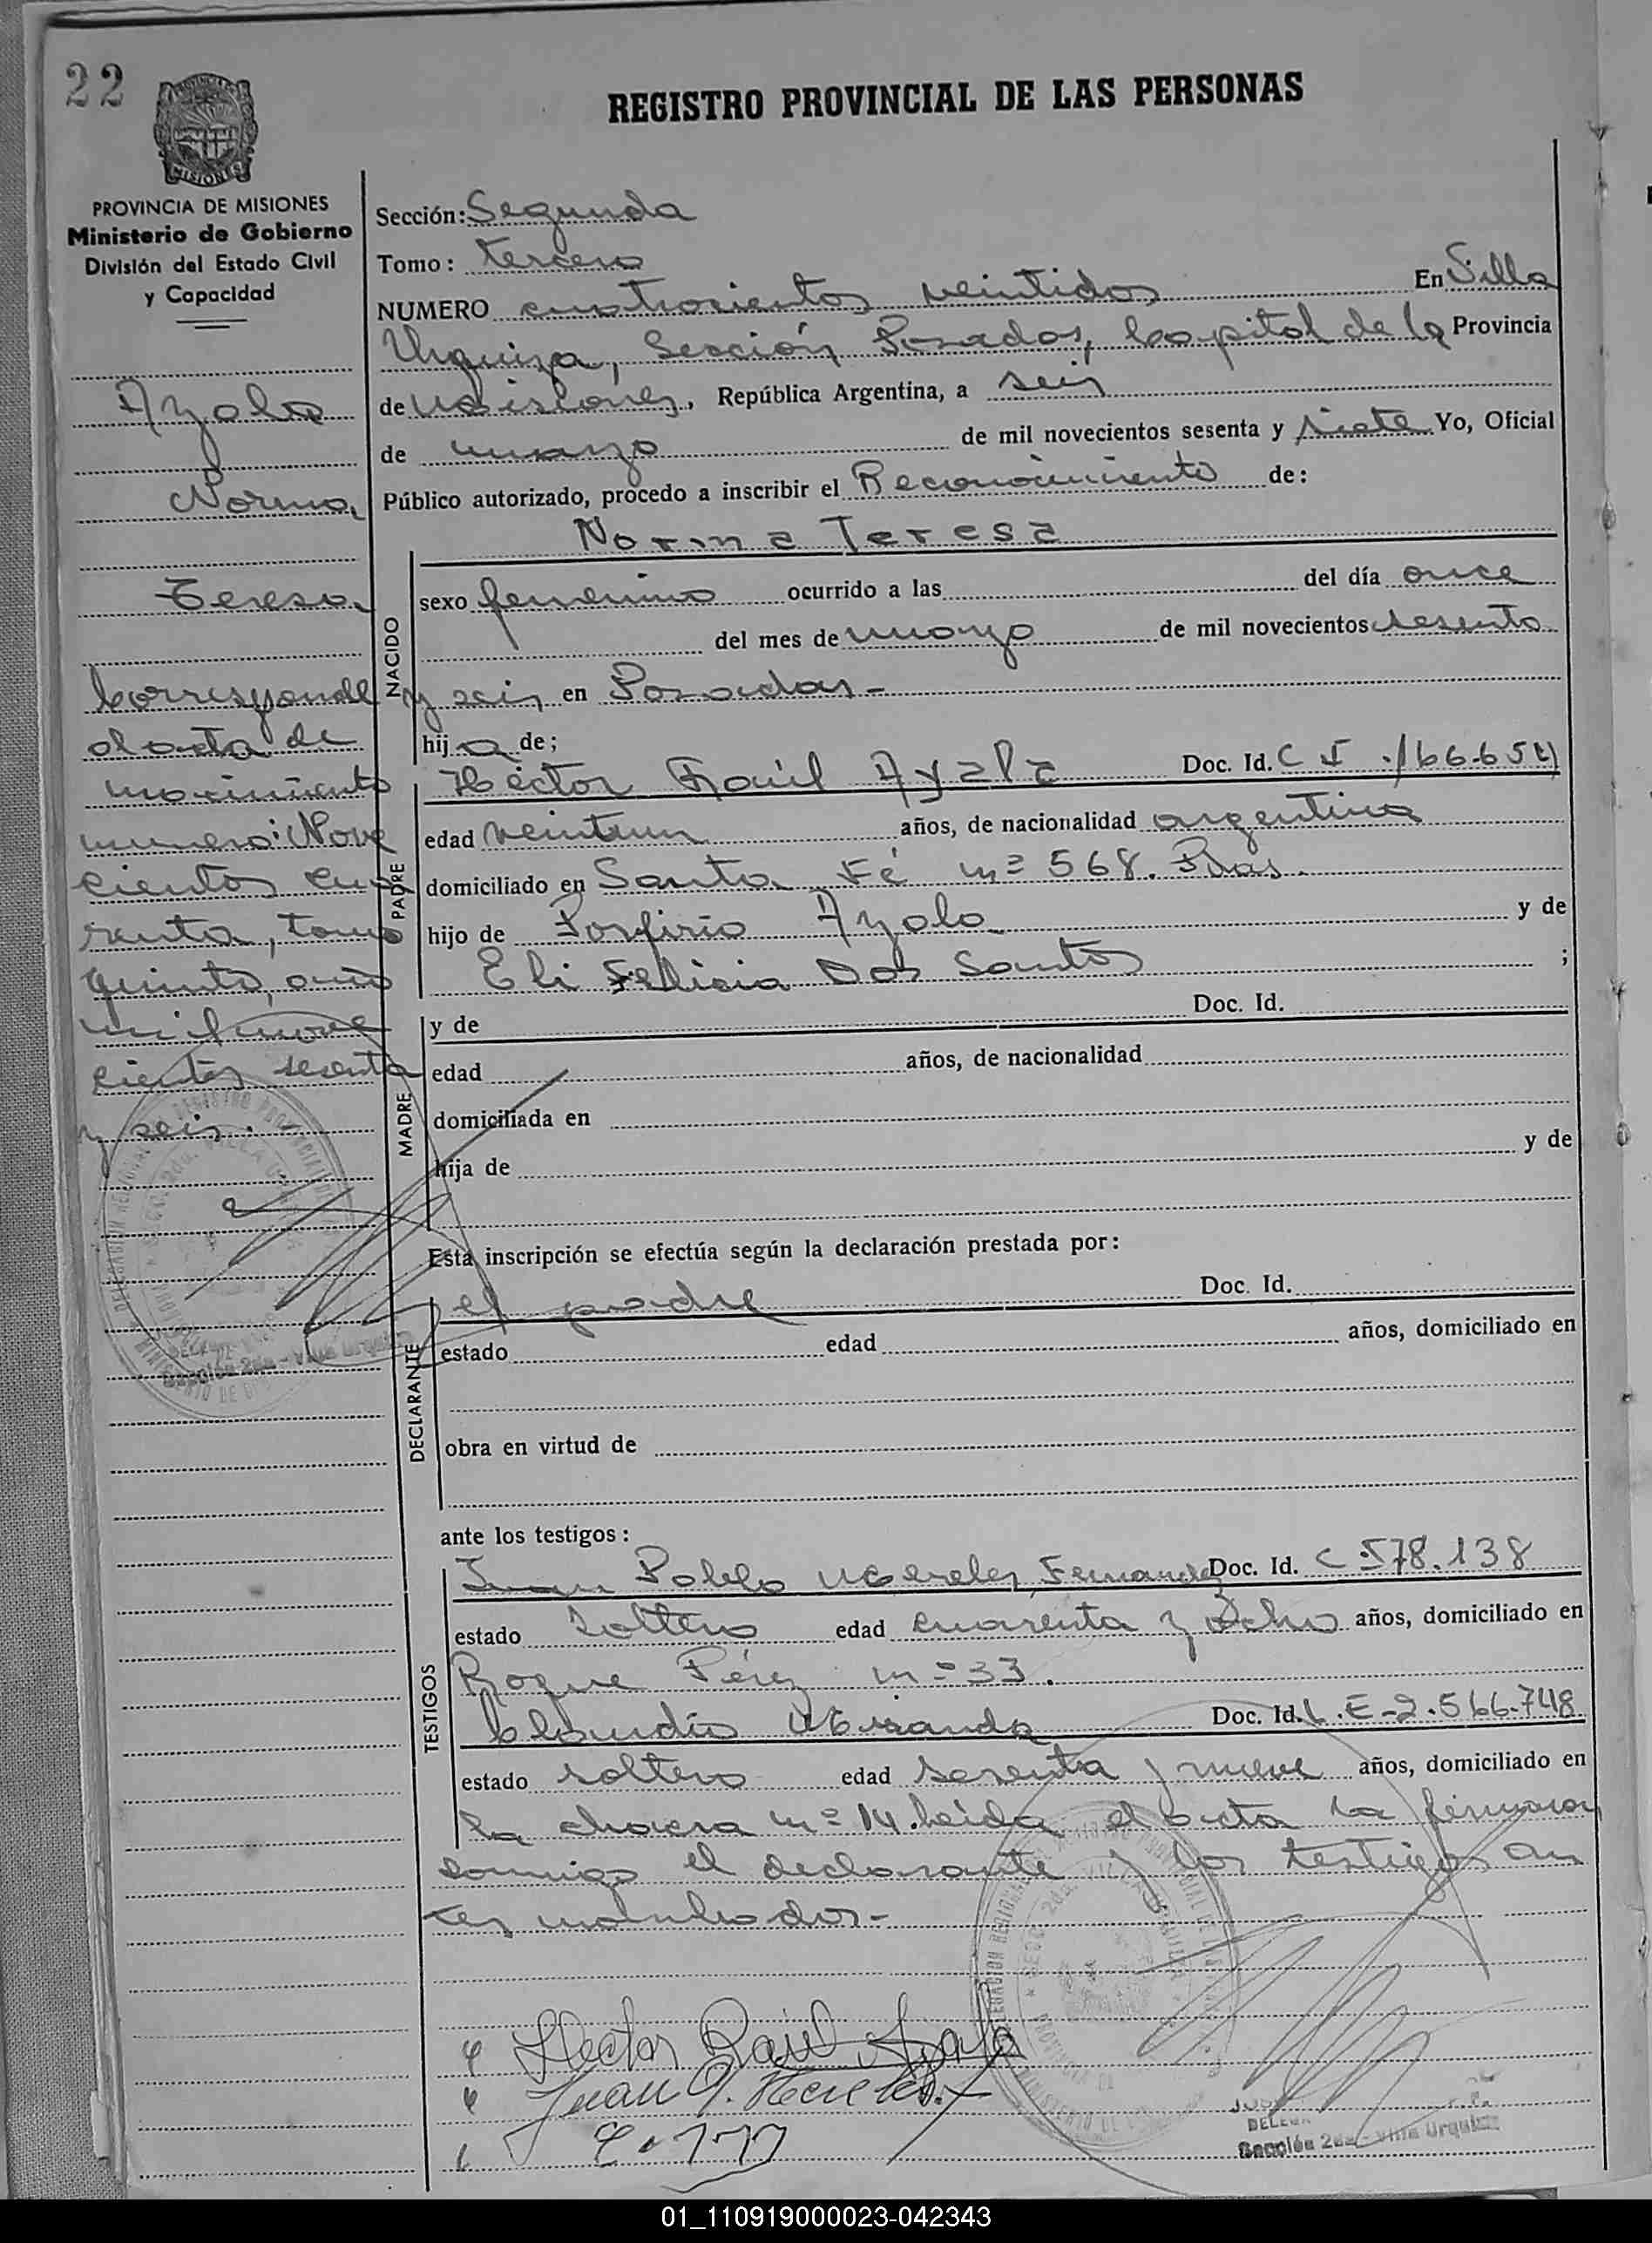 22
REGISTRO PROVINCIAL DE LAS PERSONAS
MISIONES
PROVINCIA DE MISIONES
Ministerio de Gobierno
División del Estado Civil
y Capacidad
Ayala
Norma
Teresa
Corresponde
al acta de
nacimiento
numero: Nove
cientos cua
renta, tomo
quinto, año
mil nove
cientos sesenta
y seis.
Sección: Segunda
Tomo: tercero
NUMERO cuatrocientos veintidos En Villa
Urquiza, Sección Posadas, Capital de la Provincia
de Misiones, República Argentina, a seis
de marzo de mil novecientos sesenta y siete Yo, Oficial
Público autorizado, procedo a inscribir el Reconocimiento de:
Norma Teresa
NACIDO
sexo femenino ocurrido a las del día once
del mes de marzo de mil novecientos sesenta
y seis en Posadas-
hija de;
PADRE
Héctor Raúl Ayala Doc. Id. C I 166.654
edad veintiun años, de nacionalidad argentina
domiciliado en Santa Fé nº 568. Pdas.
hijo de Porfirio Ayala y de
Eli Felicia Dos Santos ;
MADRE
y de Doc. Id.
edad años, de nacionalidad
domiciliada en
hija de y de
Esta inscripción se efectúa según la declaración prestada por:
DECLARANTE
el padre Doc. Id.
estado edad años, domiciliado en
obra en virtud de
ante los testigos:
TESTIGOS
Juan Pablo Mereles, Fernandez Doc. Id. C.578.138
estado soltero edad cuarenta y ocho años, domiciliado en
Roque Pérez nº 33.
Claudio Miranda Doc. Id. L.E-2.566.748
estado soltero edad sesenta y nueve años, domiciliado en
la chacra nº 14. Leida el acta la firmaron
conmigo el declarante y los testigos an
tes nombrados-
Hector Raúl Ayala
Juan P. Mereles F
Sección 2da - Villa Urquiza
Sección 2da - Villa Urquiza
01_110919000023-042343